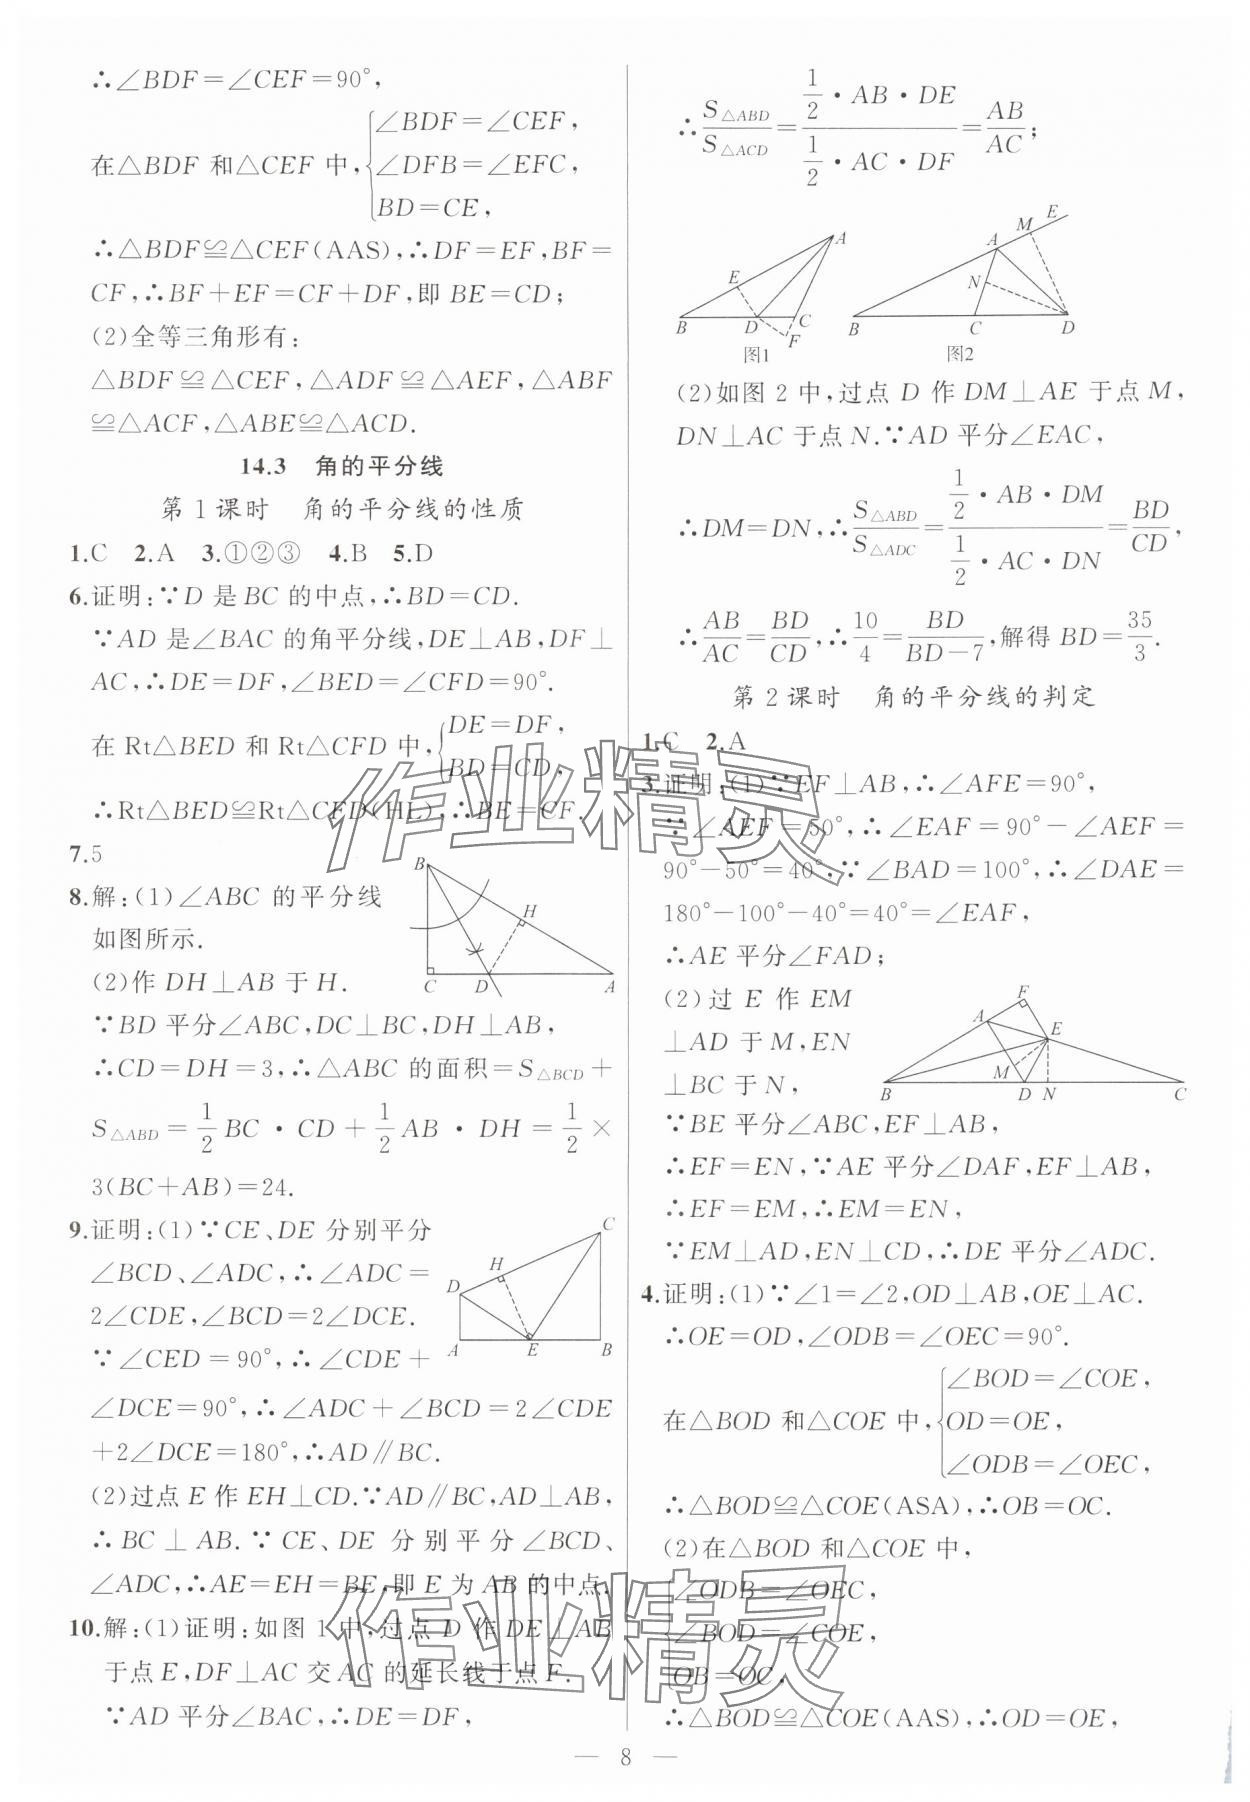 ∴∠BDF=∠CEF=90°,
在△BDF 和△CEF 中,{∠BDF=∠CEF,
∠DFB=∠EFC,
BD=CE,
∴△BDF≌△CEF(AAS),∴DF=EF,BF=
CF,∴BF+EF=CF+DF,即 BE=CD;
(2)全等三角形有:
△BDF≌△CEF,△ADF≌△AEF,△ABF
≌△ACF,△ABE≌△ACD.
14.3 角的平分线
第 1 课时 角的平分线的性质
1.C 2.A 3.①②③ 4.B 5.D
6.证明:∵D 是 BC 的中点,∴BD=CD.
∵AD 是∠BAC 的角平分线,DE⊥AB,DF⊥
AC,∴DE=DF,∠BED=∠CFD=90°.
在 Rt△BED 和 Rt△CFD 中,{DE=DF,
BD=CD,
∴Rt△BED≌Rt△CFD(HL),∴BE=CF.
7.5
8.解:(1)∠ABC 的平分线
如图所示.
(2)作 DH⊥AB 于 H.
B
H
C D A
∵BD 平分∠ABC,DC⊥BC,DH⊥AB,
∴CD=DH=3,∴△ABC 的面积=S△BCD+
S△ABD=1/2 BC·CD+1/2 AB·DH=1/2×
3(BC+AB)=24.
9.证明:(1)∵CE、DE 分别平分
∠BCD、∠ADC,∴∠ADC=
2∠CDE,∠BCD=2∠DCE.
∵∠CED=90°,∴∠CDE+
C
H
D
A E B
∠DCE=90°,∴∠ADC+∠BCD=2∠CDE
+2∠DCE=180°,∴AD∥BC.
(2)过点 E 作 EH⊥CD.∵AD∥BC,AD⊥AB,
∴BC⊥AB.∵CE、DE 分别平分∠BCD、
∠ADC,∴AE=EH=BE,即 E 为 AB 的中点.
10.解:(1)证明:如图 1 中,过点 D 作 DE⊥AB
于点 E,DF⊥AC 交 AC 的延长线于点 F.
∵AD 平分∠BAC,∴DE=DF,
∴S△ABD/S△ACD=(1/2·AB·DE)/(1/2·AC·DF)=AB/AC;
A
E
B D C
F
图1
E
M
A
N
B C D
图2
(2)如图 2 中,过点 D 作 DM⊥AE 于点 M,
DN⊥AC 于点 N.∵AD 平分∠EAC,
∴DM=DN,∴S△ABD/S△ADC=(1/2·AB·DM)/(1/2·AC·DN)=BD/CD,
∴AB/AC=BD/CD,∴10/4=BD/(BD-7),解得 BD=35/3.
第 2 课时 角的平分线的判定
1.C 2.A
3.证明:(1)∵EF⊥AB,∴∠AFE=90°,
∵∠AEF=50°,∴∠EAF=90°-∠AEF=
90°-50°=40°,∵∠BAD=100°,∴∠DAE=
180°-100°-40°=40°=∠EAF,
∴AE 平分∠FAD;
(2)过 E 作 EM
⊥AD 于 M,EN
⊥BC 于 N,
F
A
E
M
B D N C
∵BE 平分∠ABC,EF⊥AB,
∴EF=EN,∵AE 平分∠DAF,EF⊥AB,
∴EF=EM,∴EM=EN,
∵EM⊥AD,EN⊥CD,∴DE 平分∠ADC.
4.证明:(1)∵∠1=∠2,OD⊥AB,OE⊥AC.
∴OE=OD,∠ODB=∠OEC=90°.
在△BOD 和△COE 中,{∠BOD=∠COE,
OD=OE,
∠ODB=∠OEC,
∴△BOD≌△COE(ASA),∴OB=OC.
(2)在△BOD 和△COE 中,
{∠ODB=∠OEC,
∠BOD=∠COE,
OB=OC,
∴△BOD≌△COE(AAS),∴OD=OE,
作业精灵
作业精灵
— 8 —